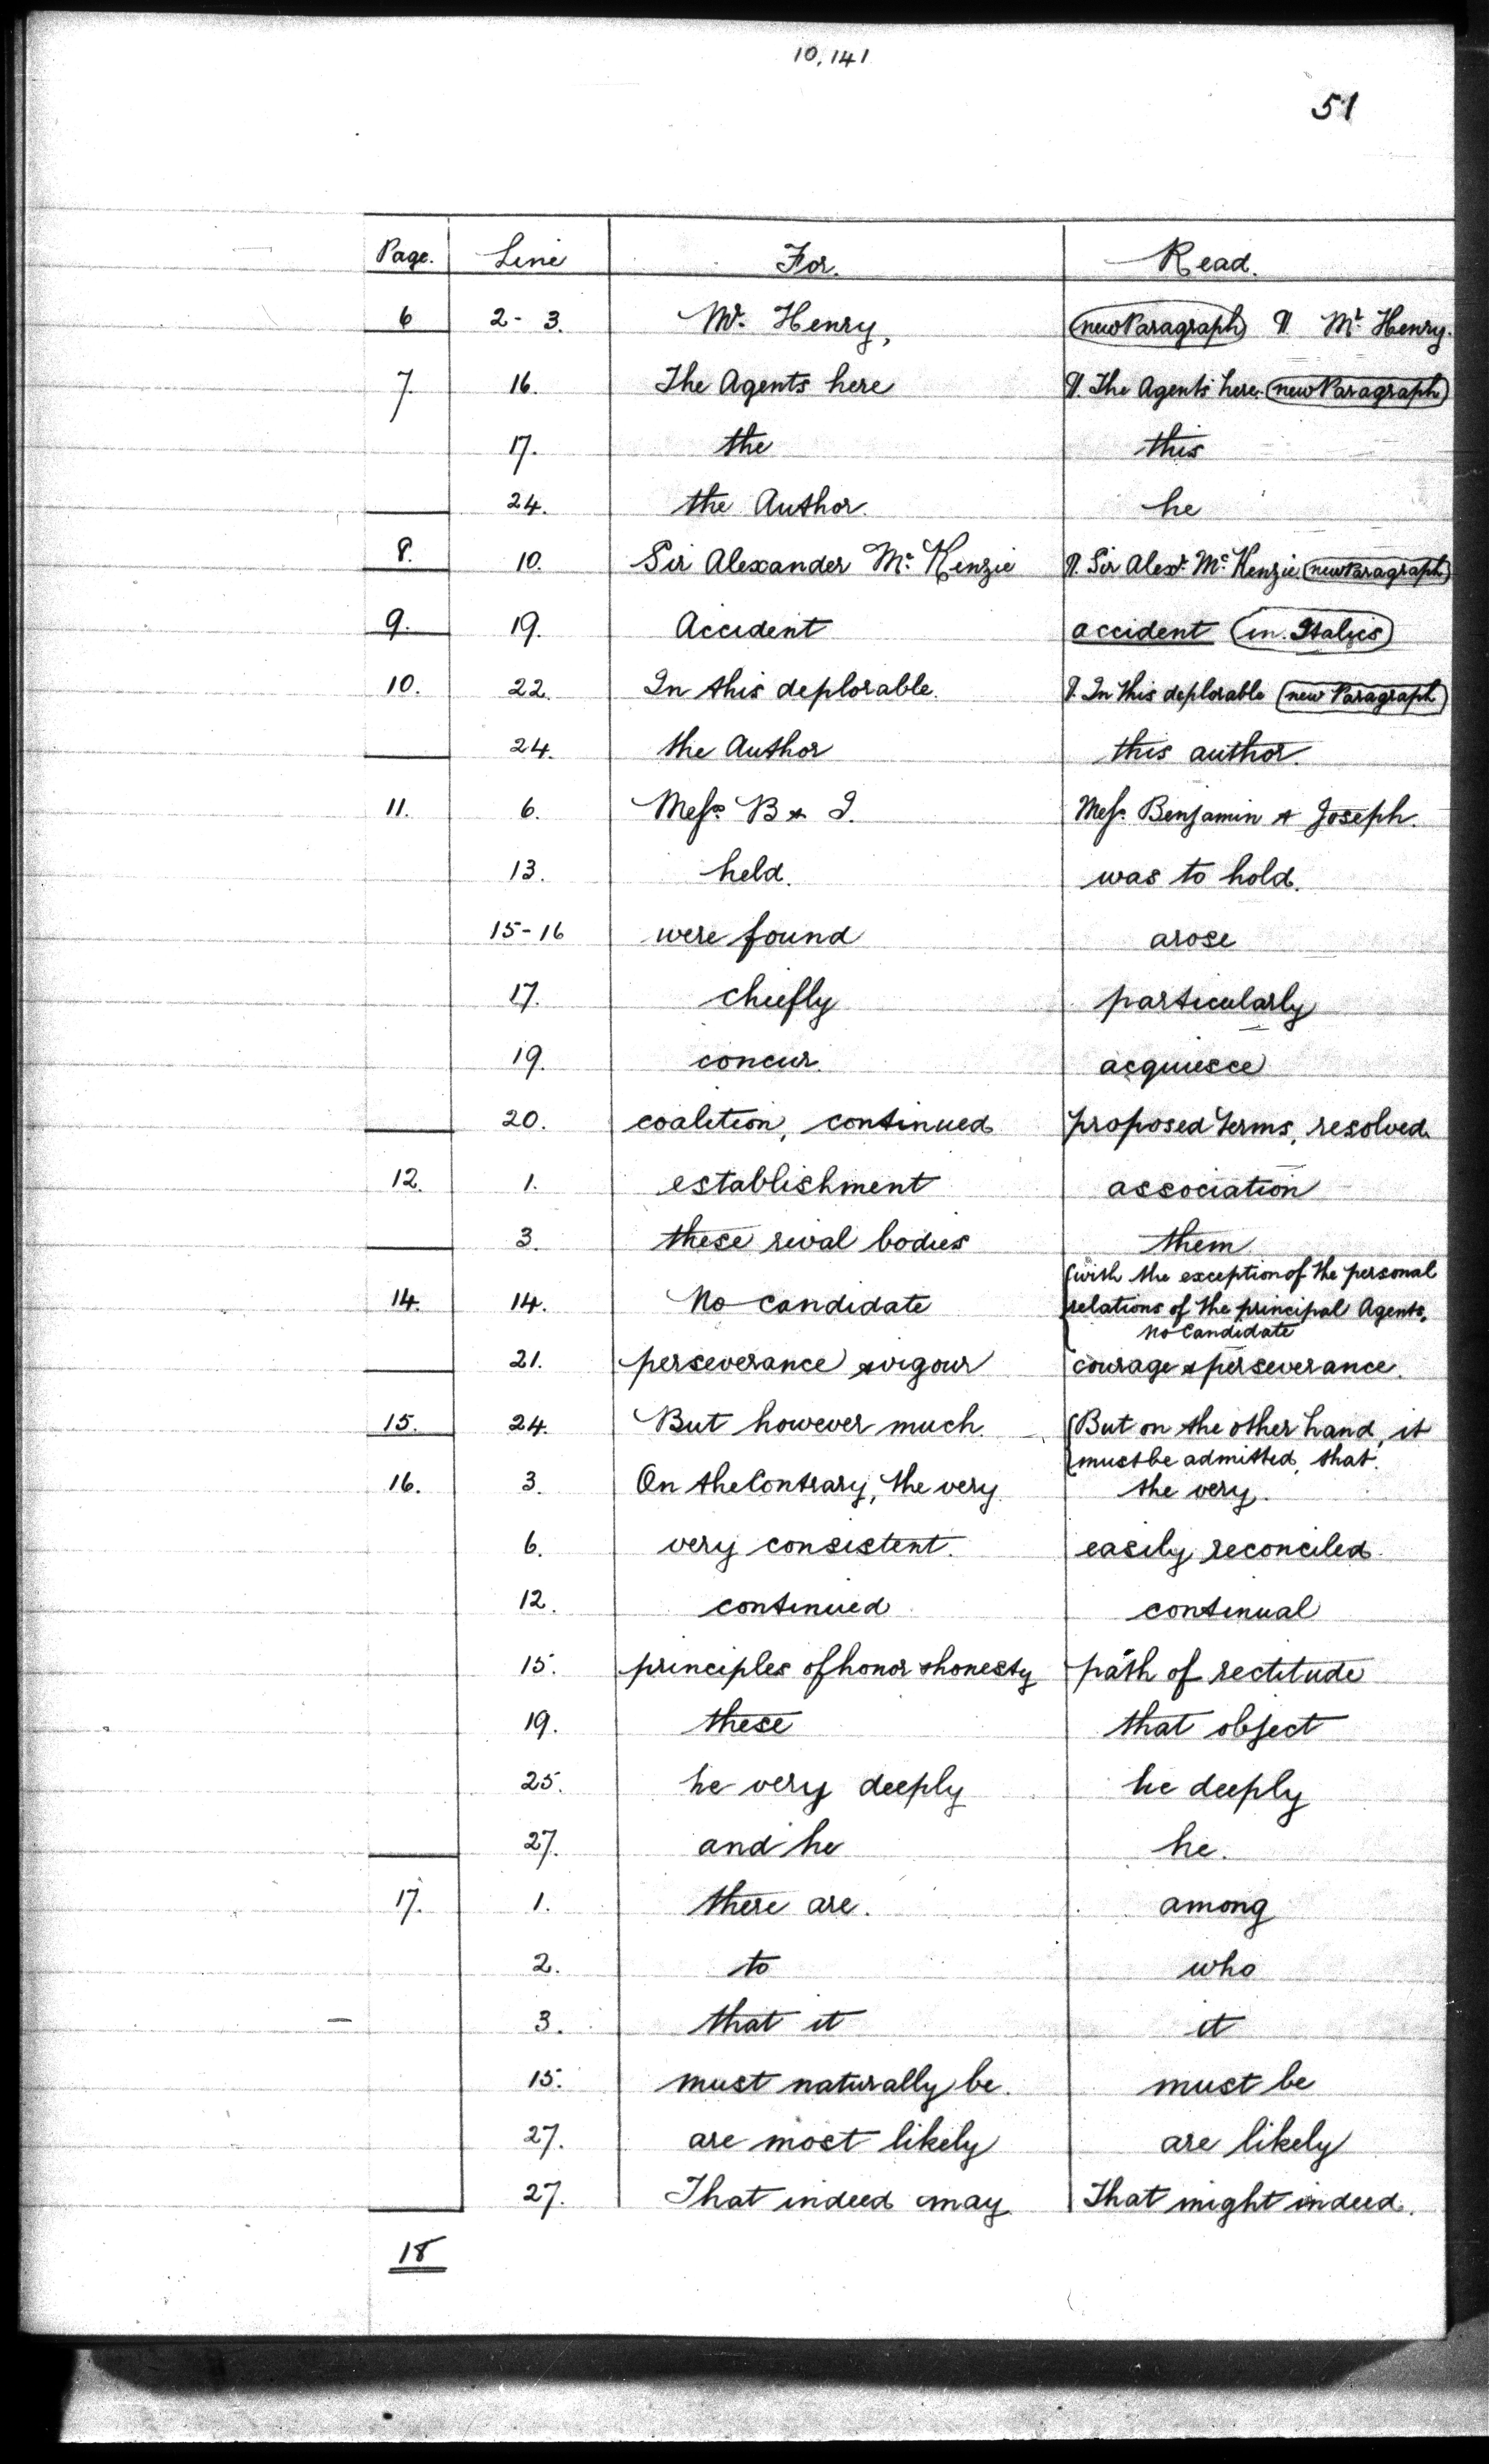 10,141
51
Page. Line For. Read.
6 2-3. Mr. Henry, new Paragraph ¶ Mr. Henry.
7. 16. The Agents here ¶. The Agents here. new Paragraph
17. the this
24. the Author. he
8. 10. Sir Alexander Mc. Kenzie ¶. Sir Alexr. Mc. Kenzie new Paragraph
9. 19. Accident accident in Italics
10. 22. In this deplorable. ¶. In this deplorable new Paragraph
24. the Author this author.
11. 6. Messrs. B & J. Messrs. Benjamin & Joseph.
13. held. was to hold.
15-16 were found arose
17. chiefly particularly
19. concur. acquiesce
20. coalition, continued proposed terms, resolved.
12. 1. establishment association
3. these rival bodies them
14. 14. No candidate with the exception of the personal
relations of the principal Agents,
no Candidate
21. perseverance & vigour courage & perseverance.
15. 24. But however much. But on the other hand, it
must be admitted, that.
16. 3. On the Contrary, the very the very.
6. very consistent. easily reconciled.
12. continued continual
15. principles of honor & honesty path of rectitude
19. these that object
25. he very deeply he deeply
27. and he he.
17. 1. there are. among
2. to who
3. that it it
15. must naturally be. must be
27. are most likely are likely
27. That indeed may That might indeed.
18